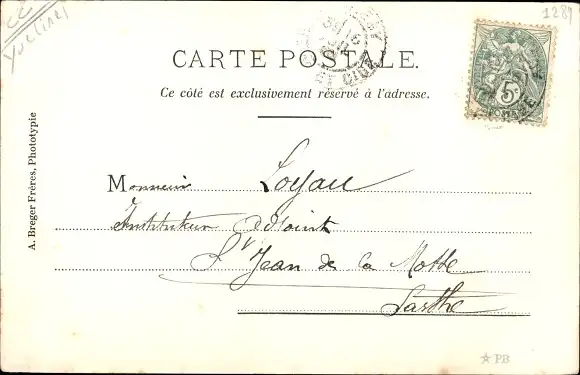 1289
CARTE POSTALE.
Ce côté est exclusivement réservé à l'adresse.
A. Breger Frères, Phototypie
Monsieur Loyau
Instituteur Adjoint
St Jean de la Motte
Sarthe
5c
PB